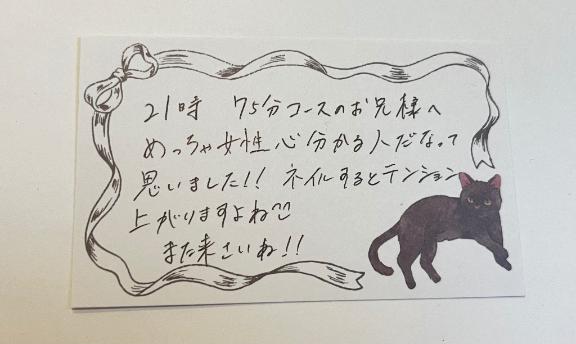 21時 75分コースのお兄様へ
めっちゃ女性心分かる人だなって
思いました!! ネイルするとテンション
上がりますよね♡♡
また来さいね!!